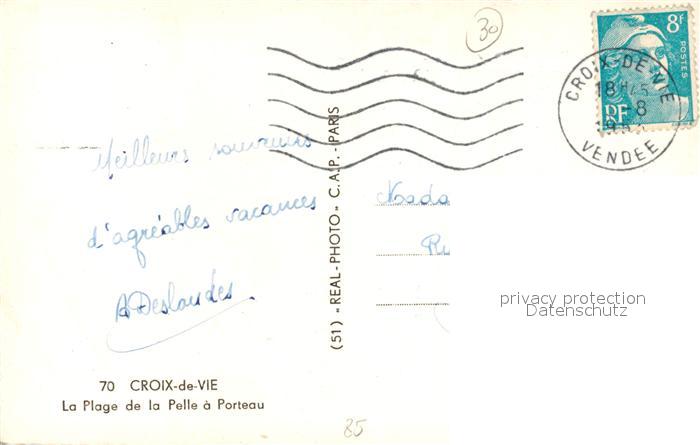 30
8f
POSTES
RF
CROIX-DE-VIE
18H45
8
VENDEE
Meilleurs souvenirs
d'agréables vacances
A Deslandes
(51) "REAL-PHOTO" C.A.P. - PARIS
privacy protection
Datenschutz
70 CROIX-de-VIE
La Plage de la Pelle à Porteau
85